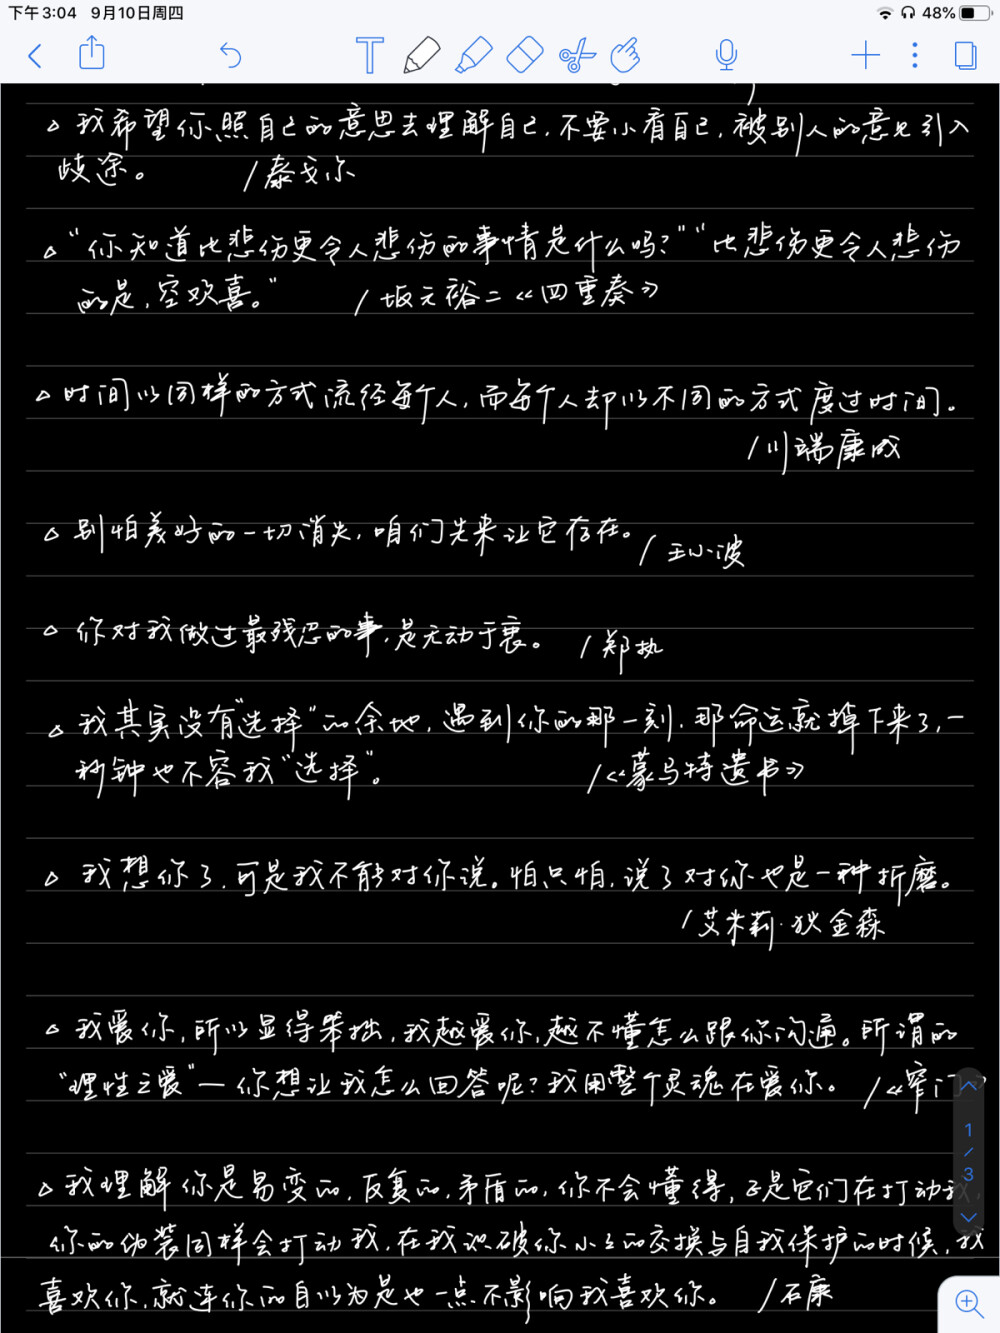 下午3:04 9月10日周四
48%
T
△ 我希望你照自己的意思去理解自己,不要小看自己,被别人的意见引入
歧途。 /泰戈尔
△ “你知道比悲伤更令人悲伤的事情是什么吗?”“比悲伤更令人悲伤
的是,空欢喜。” /坂元裕二《四重奏》
△ 时间以同样的方式流经每个人,而每个人却以不同的方式度过时间。
/川端康成
△ 别怕美好的一切消失,咱们先来让它存在。 /王小波
△ 你对我做过最残忍的事,是无动于衷。 /郑执
△ 我其实没有“选择”的余地,遇到你的那一刻,那命运就掉下来了,一
秒钟也不容我“选择”。 /《蒙马特遗书》
△ 我想你了,可是我不能对你说。怕只怕,说了对你也是一种折磨。
/艾米莉·狄金森
△ 我爱你,所以显得笨拙,我越爱你,越不懂怎么跟你沟通。所谓的
“理性之爱”—你想让我怎么回答呢?我用整个灵魂在爱你。 /《窄门》
1
/
3
△ 我理解你是易变的,反复的,矛盾的,你不会懂得,正是它们在打动我,
你的伪装同样会打动我,在我识破你小小的交换与自我保护的时候,我
喜欢你,就连你的自以为是也一点不影响我喜欢你。 /石康